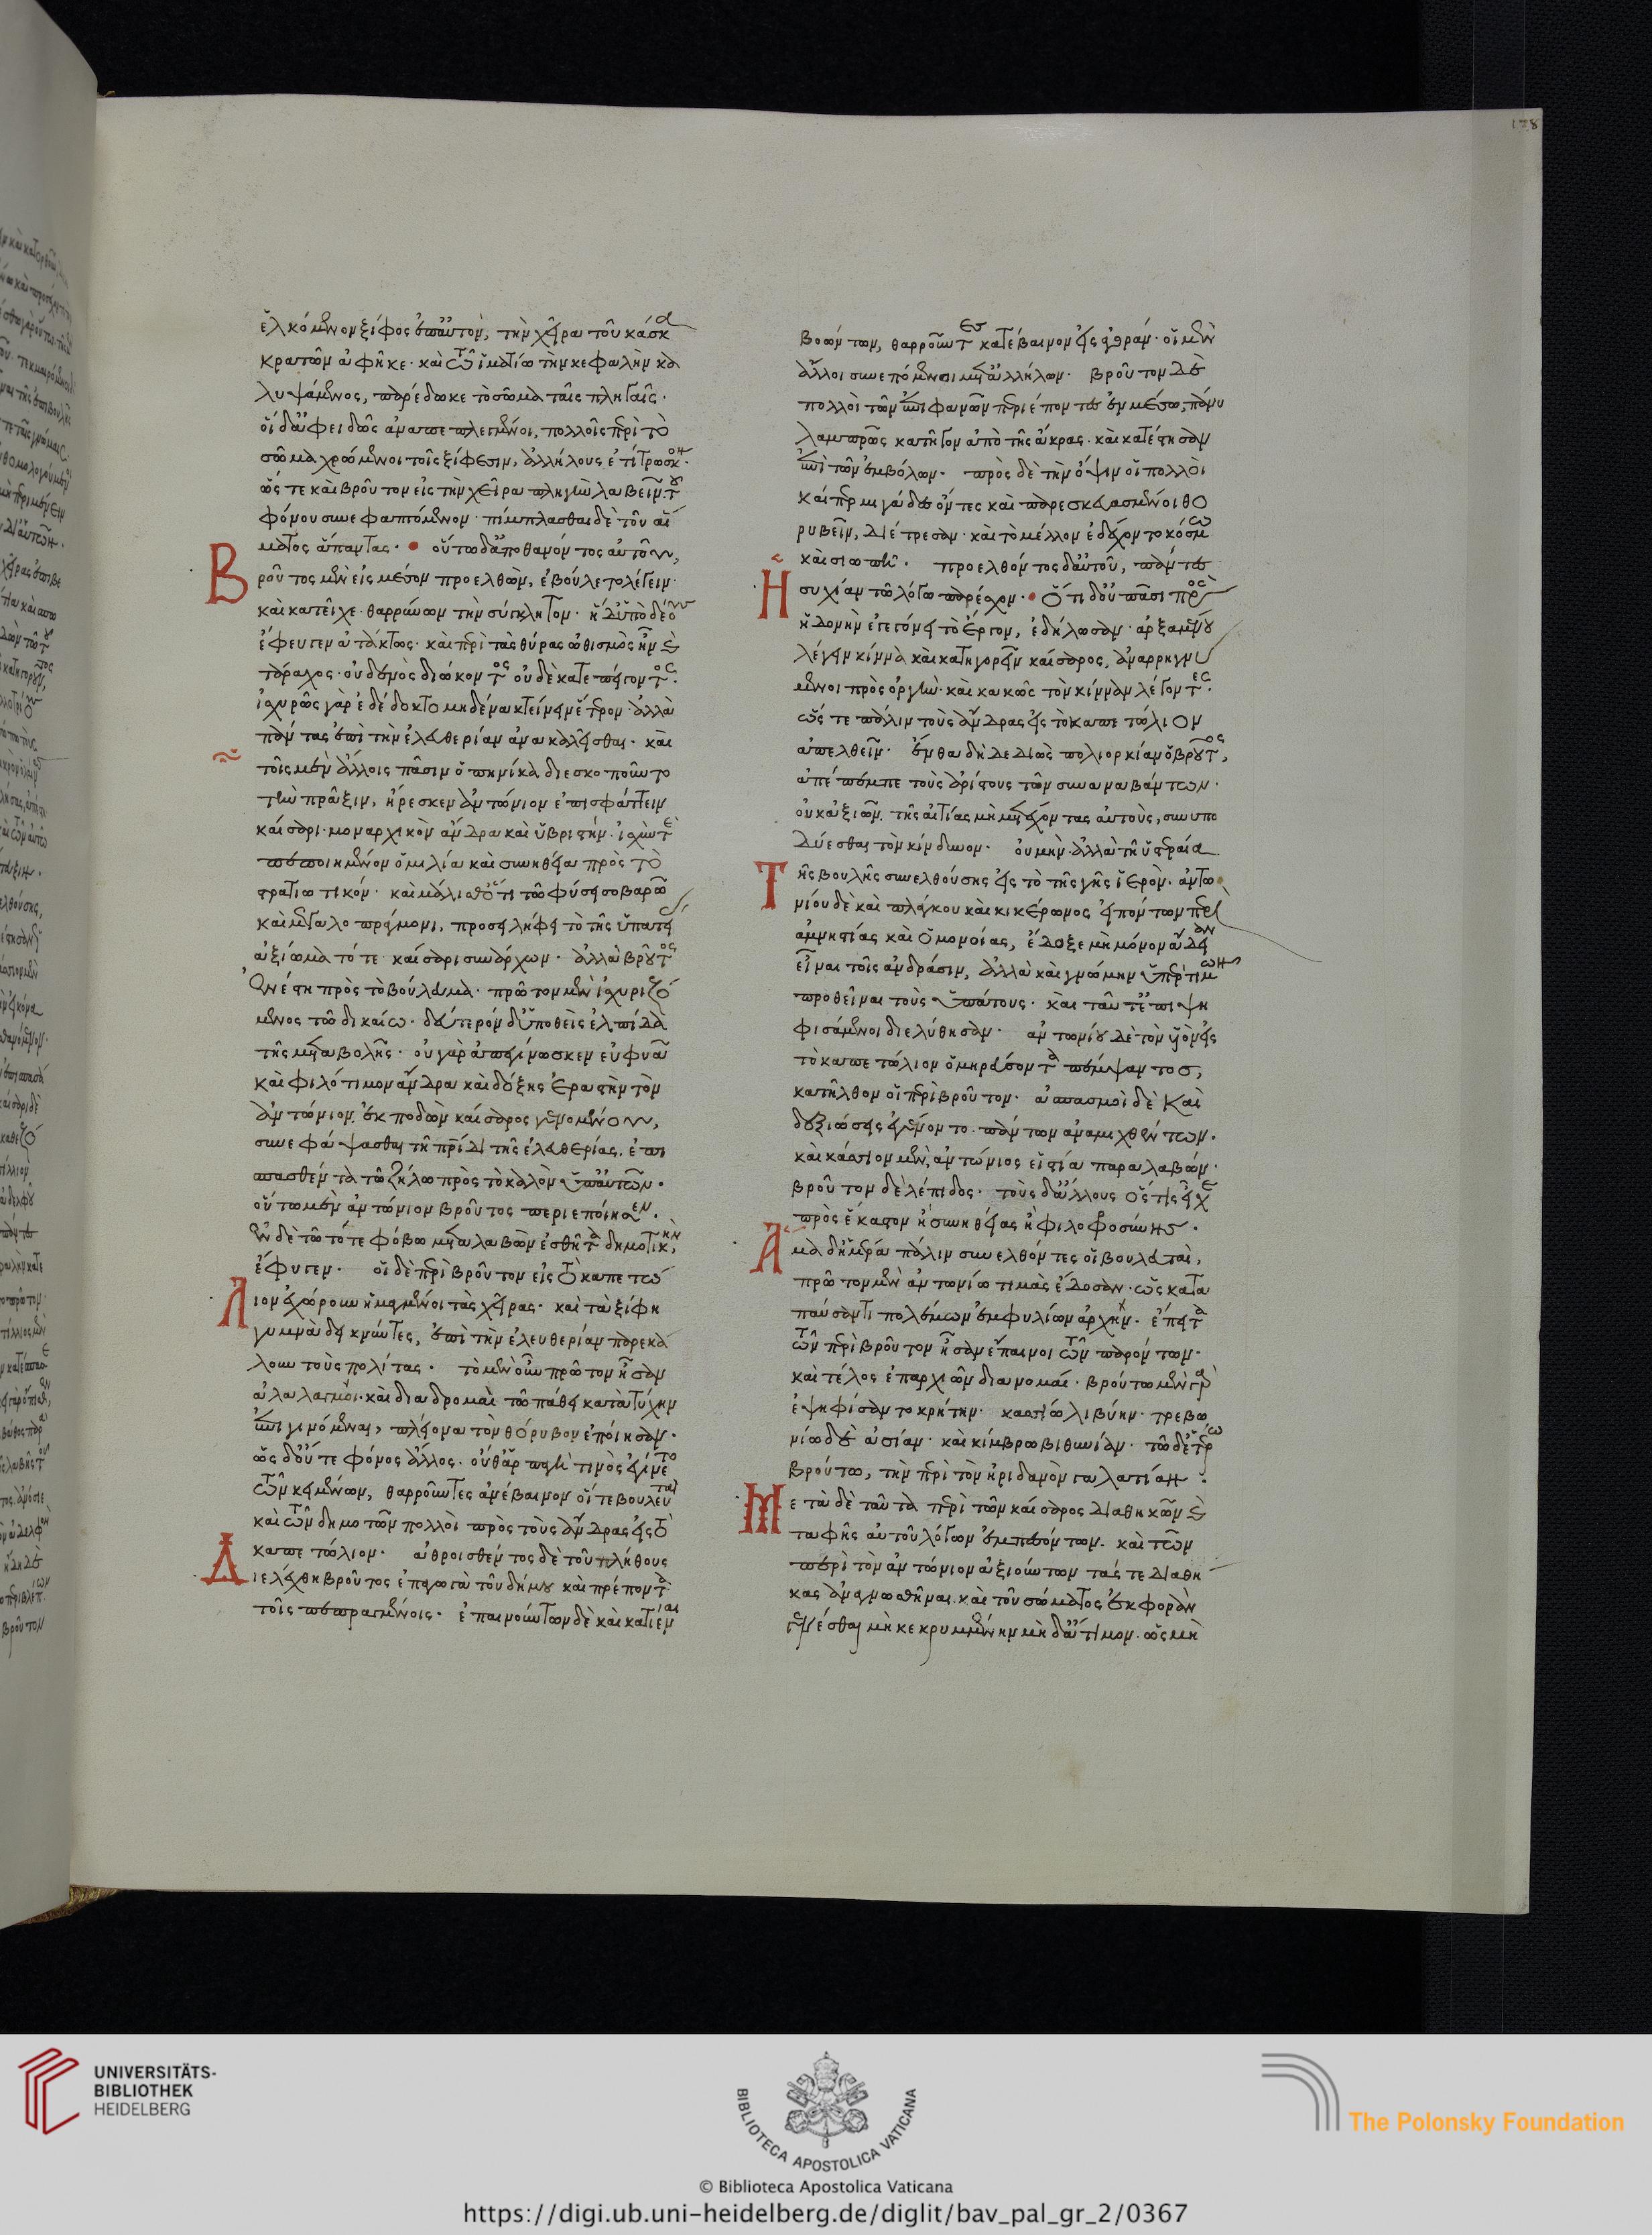 ἑλκόμενον ξίφος ἐπ' αὐτὸν, τὴν χεῖρα τοῦ κάσκα
κρατῶν ἀφῆκε· καὶ τῶ ἱματίω τὴν κεφαλὴν κα
λυψάμενος, παρέδωκε τὸ σῶμα ταῖς πληγαῖς·
οἱ δ' ἀφειδῶς ἀναπεπλεγμένοι, πολλοῖς περὶ τὸ
σῶμα χρώμενοι τοῖς ξίφεσιν, ἀλλήλους ἐτίτρωσκον·
ὥς τε καὶ βροῦτον εἰς τὴν χεῖρα πληγὴν λαβεῖν τοῦ
φόνου συνεφαπτόμενον· πίμπλασθαι δὲ τοῦ αἵ
ματος ἅπαντας· οὕτω δ' ἀποθανόντος αὐτοῦ,
Βροῦτος μὲν εἰς μέσον προελθὼν, ἐβούλετο λέγειν·
καὶ κατεῖχε θαρρύνων τὴν σύγκλητον· ἡ δ' ὑπὸ δέους
ἔφευγεν ἀτάκτως· καὶ περὶ τὰς θύρας ὠθισμὸς ἦν καὶ
τάραχος· οὐδενὸς διώκοντος οὐδὲ κατεπείγοντος·
ἰσχυρῶς γὰρ ἐδέδοκτο μηδένα κτείνειν ἕτερον· ἀλλὰ
πάντας ἐπὶ τὴν ἐλευθερίαν ἀνακαλεῖσθαι· καὶ
τοῖς μὲν ἄλλοις πᾶσιν ὁπηνίκα διεσκοποῦντο
τὴν πρᾶξιν, ἤρεσκεν ἀντώνιον ἐπισφάττειν
καίσαρι· μοναρχικὸν ἄνδρα καὶ ὑβριστήν· ἰσχύν τε
πεποιημένον ὁμιλία καὶ συνηθεία πρὸς τὸ
στρατιωτικόν· καὶ μάλισθ' ὅτι τῶ φύσει σοβαρῶ
καὶ μεγαλοπράγμονι, προσειλήφει τὸ τῆς ὑπατείας
ἀξίωμα τότε καίσαρι συνάρχων· ἀλλὰ βροῦτος
ἐνέστη πρὸς τὸ βούλευμα· πρῶτον μὲν ἰσχυριζό
μενος τῶ δικαίω· δεύτερον δ' ὑποθεὶς ἐλπίδα
τῆς μεταβολῆς· οὐ γὰρ ἀπεγίνωσκεν εὐφυᾶ
καὶ φιλότιμον ἄνδρα καὶ δόξης ἐραστὴν τὸν
ἀντώνιον, ἐκποδὼν καίσαρος γενομένου,
συνεφάψασθαι τῆ πατρίδι τῆς ἐλευθερίας, ἐπι
σπασθέντα τῶ ζήλω πρὸς τὸ καλὸν ὑπ' αὐτῶν·
οὕτω μὲν ἀντώνιον βροῦτος περιεποίησεν·
ἐν δὲ τῶ τότε φόβω μεταλαβὼν ἐσθῆτα δημοτικὴν,
ἔφυγεν· οἱ δὲ περὶ βροῦτον εἰς τὸ καπετώ
λιον ἐχώρουν ἡμαγμένοι τὰς χεῖρας· καὶ τὰ ξίφη
γυμνὰ δεικνύντες, ἐπὶ τὴν ἐλευθερίαν παρεκά
λουν τοὺς πολίτας· τὸ μὲν οὖν πρῶτον ἦσαν
ἀλαλαγμοί· καὶ διαδρομαὶ τῶ πάθει κατὰ τύχην
ἐπιγινόμεναι, πλείονα τὸν θόρυβον ἐποίησαν·
ὡς δ' οὔτε φόνος ἄλλος, οὐθ' ἁρπαγή τινος ἐγίνετο
τῶν κειμένων, θαρροῦντες ἀνέβαινον οἵ τε βουλευταὶ
καὶ τῶν δημοτῶν πολλοὶ πρὸς τοὺς ἄνδρας εἰς τὸ
καπετώλιον· ἀθροισθέντος δὲ τοῦ πλήθους
Διελέχθη βροῦτος ἐπαγωγὰ τοῦ δήμου καὶ πρέποντα
τοῖς πεπραγμένοις· ἐπαινούντων δὲ καὶ κατιέναι
βοώντων, θαρροῦντες κατέβαινον εἰς ἀγοράν· οἱ μὲν
ἄλλοι συνεπόμενοι μετ' ἀλλήλων· βροῦτον δὲ
πολλοὶ τῶν ἐπιφανῶν περιέποντες ἐν μέσω, πάνυ
λαμπρῶς κατῆγον ἀπὸ τῆς ἄκρας· καὶ κατέστησαν
ἐπὶ τῶν ἐμβόλων· πρὸς δὲ τὴν ὄψιν οἱ πολλοὶ
καίπερ μιγάδες ὄντες καὶ παρεσκευασμένοι θο
ρυβεῖν, διέτρεσαν· καὶ τὸ μέλλον ἐδέχοντο κόσμω
καὶ σιωπῆ· προελθόντος δ' αὐτοῦ, πάντες
Ἡσυχίαν τῶ λόγω παρέσχον· Ὅτι δ' οὐ πᾶσι πρὸς
ἡδονὴν ἐγεγόνει τὸ ἔργον, ἐδήλωσαν· ἀρξαμένου
λέγειν κίννα καὶ κατηγορεῖν καίσαρος, ἀναρρηγνύ
μενοι πρὸς ὀργὴν· καὶ κακῶς τὸν κίνναν λέγοντες·
ὥς τε πάλιν τοὺς ἄνδρας εἰς τὸ καπετώλιον
ἀπελθεῖν· ἔνθα δὴ δεδιὼς πολιορκίαν ὁ βροῦτος,
ἀπέπεμπε τοὺς ἀρίστους τῶν συναναβάντων·
οὐκ ἀξιῶν, τῆς αἰτίας μὴ μετέχοντας αὐτοὺς, συνυπο
δύεσθαι τὸν κίνδυνον· οὐ μὴν ἀλλὰ τῆ ὑστεραία
Τῆς βουλῆς συνελθούσης εἰς τὸ τῆς γῆς ἱερὸν· ἀντω
νίου δὲ καὶ πλάγκου καὶ κικέρωνος εἰπόντων περὶ
ἀμνηστίας καὶ ὁμονοίας, ἔδοξε μὴ μόνον ἄδειαν
εἶναι τοῖς ἀνδράσιν, ἀλλὰ καὶ γνώμην ὑπὲρ τιμῶν
προθεῖναι τοὺς ὑπάτους· καὶ ταῦτ' ἐπιψη
φισάμενοι διελύθησαν· ἀντωνίου δὲ τὸν υἱὸν εἰς
τὸ καπετώλιον ὁμηρεύσοντα πέμψαντος,
κατῆλθον οἱ περὶ βροῦτον· ἀσπασμοὶ δὲ καὶ
δεξιώσεις ἐγένοντο πάντων ἀναμιχθέντων·
καὶ κάσσιον μὲν, ἀντώνιος εἱστία παραλαβών·
βροῦτον δὲ λέπιδος· τοὺς δ' ἄλλους ὥς τις εἶχε
πρὸς ἕκαστον ἢ συνηθείας ἢ φιλοφροσύνης·
Ἅμα δ' ἡμέρα πάλιν συνελθόντες οἱ βουλευταὶ,
πρῶτον μὲν ἀντωνίω τιμὰς ἔδοσαν· ὡς κατα
παύσαντι πολέμων ἐμφυλίων ἀρχήν· ἔπειτα
τῶν περὶ βροῦτον ἦσαν ἔπαινοι τῶν παρόντων·
καὶ τέλος ἐπαρχιῶν διανομαί· βρούτω μὲν γὰρ
ἐψηφίσαντο κρήτην· κασσίω λιβύην· τρεβω
νίω δὲ ἀσίαν· καὶ κίμβρω βιθυνίαν· τῶ δ' ἑτέρω
βρούτω, τὴν περὶ τὸν ἠριδανὸν γαλατίαν·
Μετὰ δὲ ταῦτα περὶ τῶν καίσαρος διαθηκῶν καὶ
ταφῆς αὐτοῦ λόγων ἐμπεσόντων· καὶ τῶν
περὶ τὸν ἀντώνιον ἀξιούντων τάς τε διαθή
κας ἀναγνωσθῆναι, καὶ τοῦ σώματος ἐκφορὰν
γενέσθαι μὴ κεκρυμμένην μὴδ' ἄτιμον· ὡς μὴ
128
UNIVERSITÄTS-
BIBLIOTHEK
HEIDELBERG
BIBLIOTECA APOSTOLICA VATICANA
The Polonsky Foundation
© Biblioteca Apostolica Vaticana
https://digi.ub.uni-heidelberg.de/diglit/bav_pal_gr_2/0367